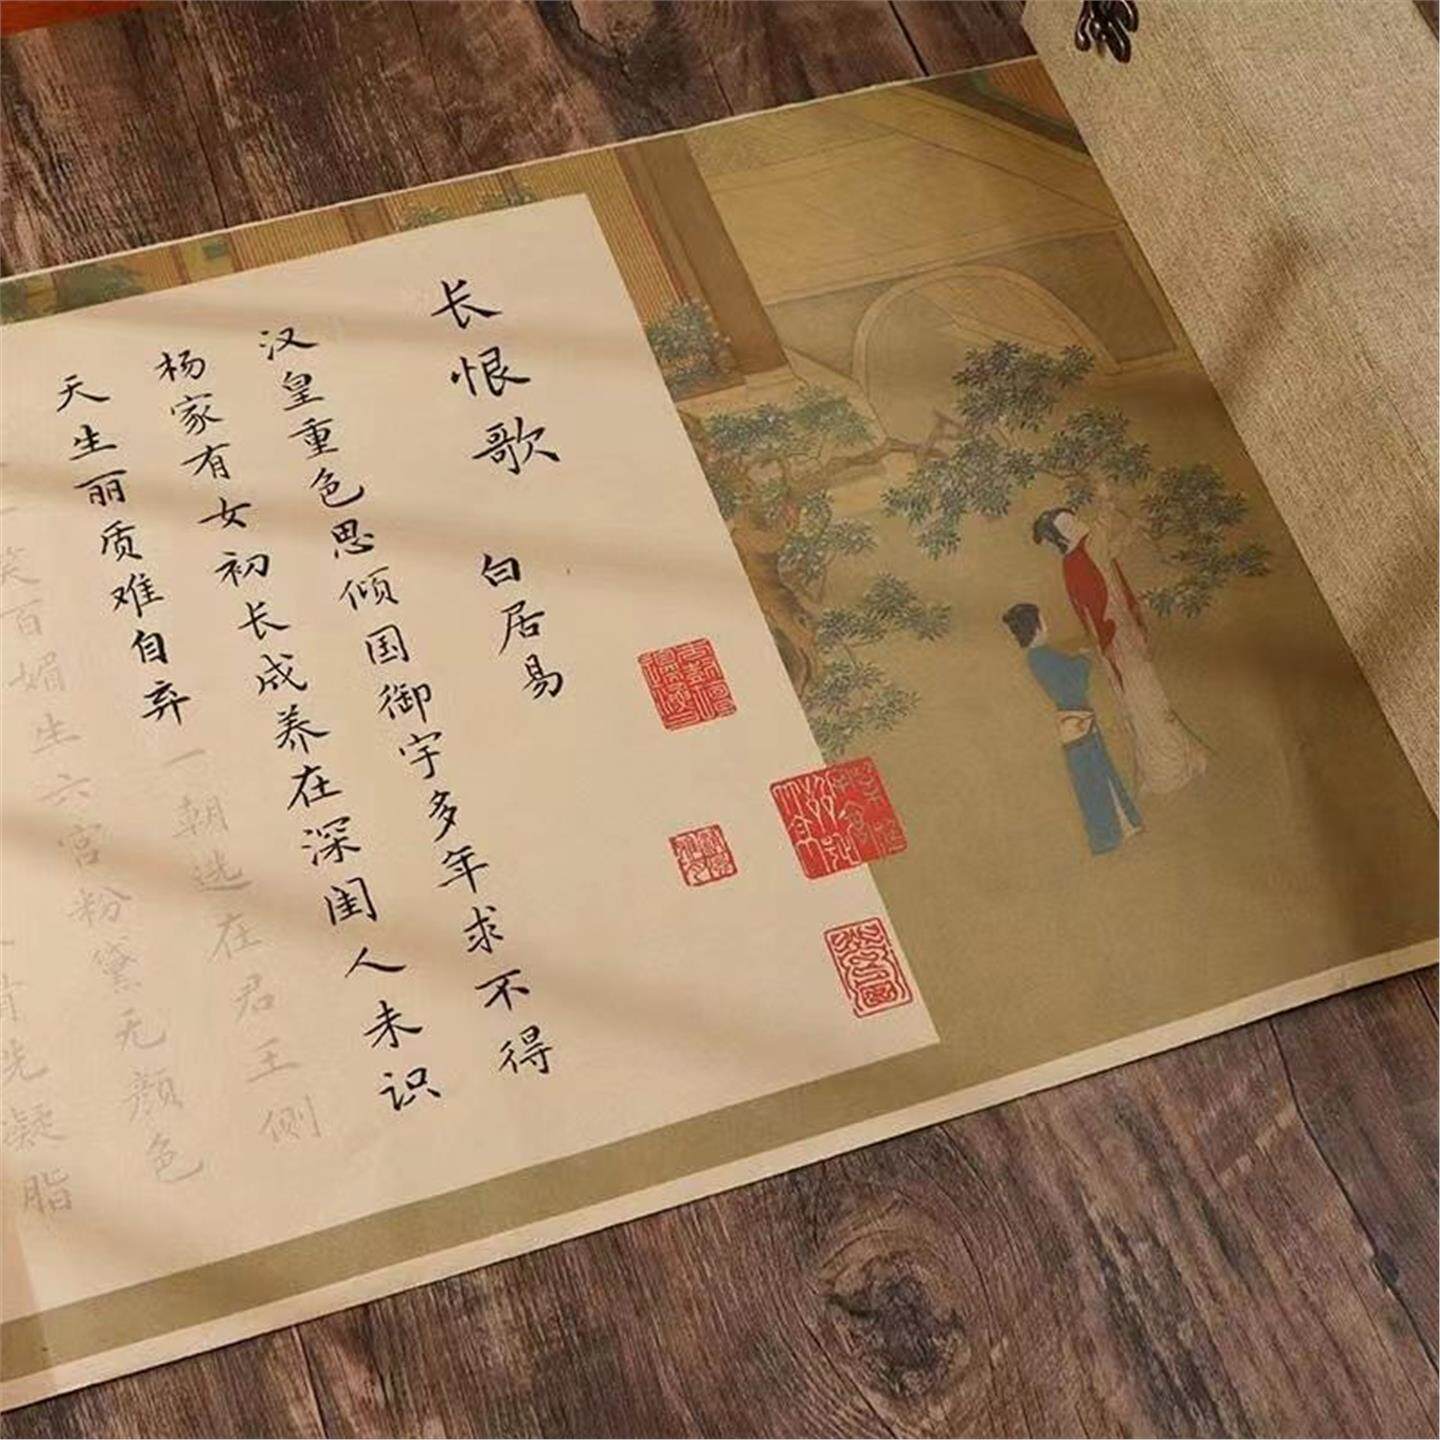 长恨歌 白居易
汉皇重色思倾国御宇多年求不得
杨家有女初长成养在深闺人未识
天生丽质难自弃一朝选在君王侧
一笑百媚生六宫粉黛无颜色
洗凝脂